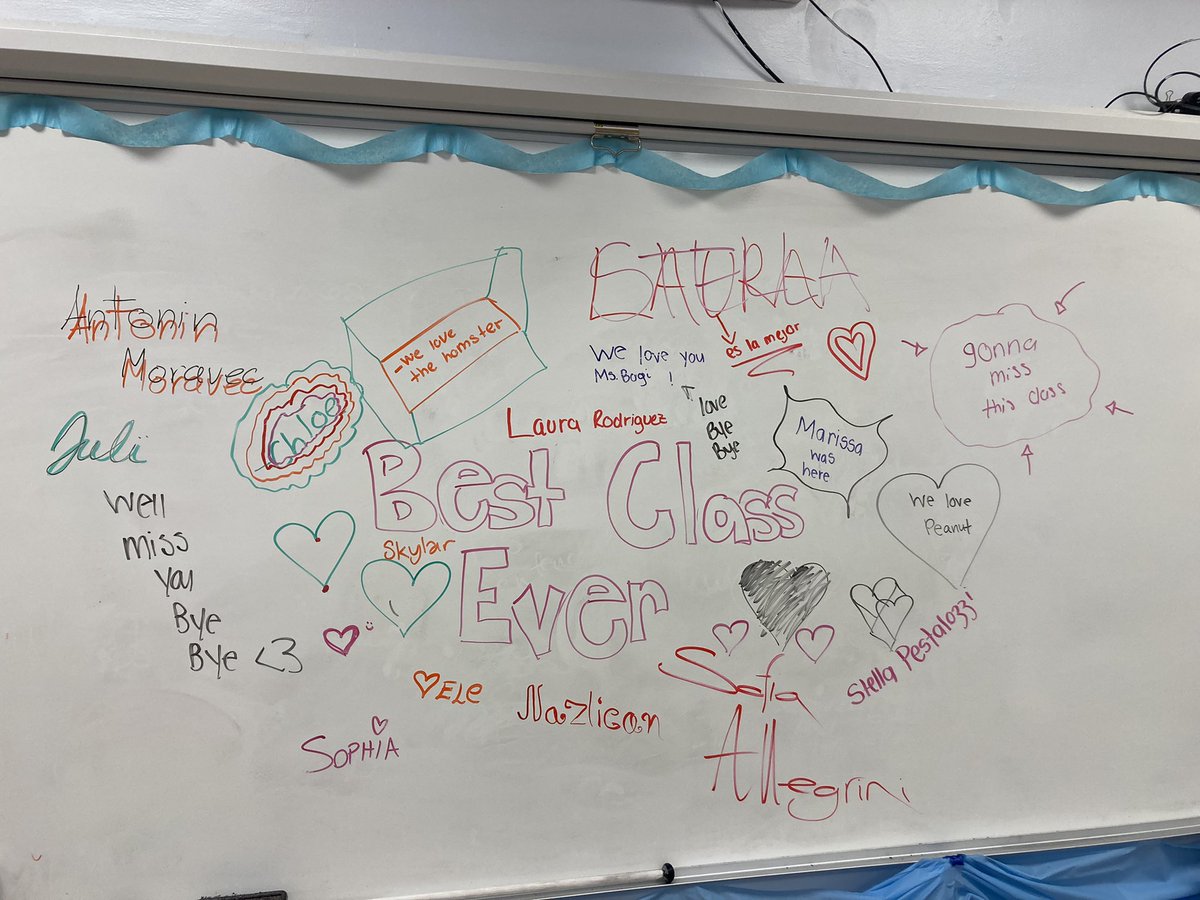 Antonin
Moravec
Juli
Well
miss
you
Bye
Bye <3
Chloe
-we love
the hamster
es la mejor
We love you
Ms. Bagi !
love
Bye
Bye
Laura Rodriguez
Marissa
was
here
gonna
miss
this class
We love
Peanut
Best Class
Ever
Skylar
ELE
Nazlican
SOPHIA
Sofia
Allegrini
Stella Pestalozzi